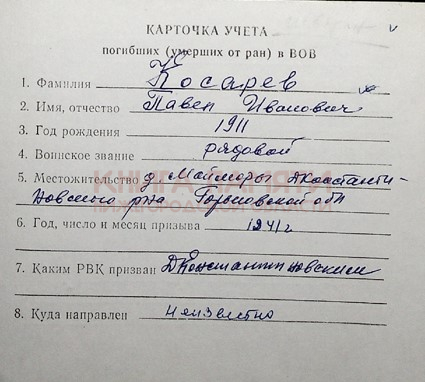 КАРТОЧКА УЧЕТА
погибших (умерших от ран) в ВОВ
1. Фамилия Косарев
2. Имя, отчество Павел Иванович
3. Год рождения 1911
4. Воинское звание рядовой
5. Местожительство д. Майморы Дконстанти-
новского р-на Горьковской обл
КНИГА ПАМЯТИ
НИЖЕГОРОДСКОЙ ОБЛАСТИ
6. Год, число и месяц призыва 1941 г
7. Каким РВК призван Дконстантиновским
8. Куда направлен неизвестно